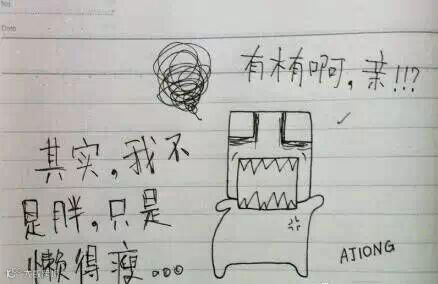 No.
Date
有木有啊,亲!!!?
其实,我不
是胖,只是
懒得瘦...
AJIONG